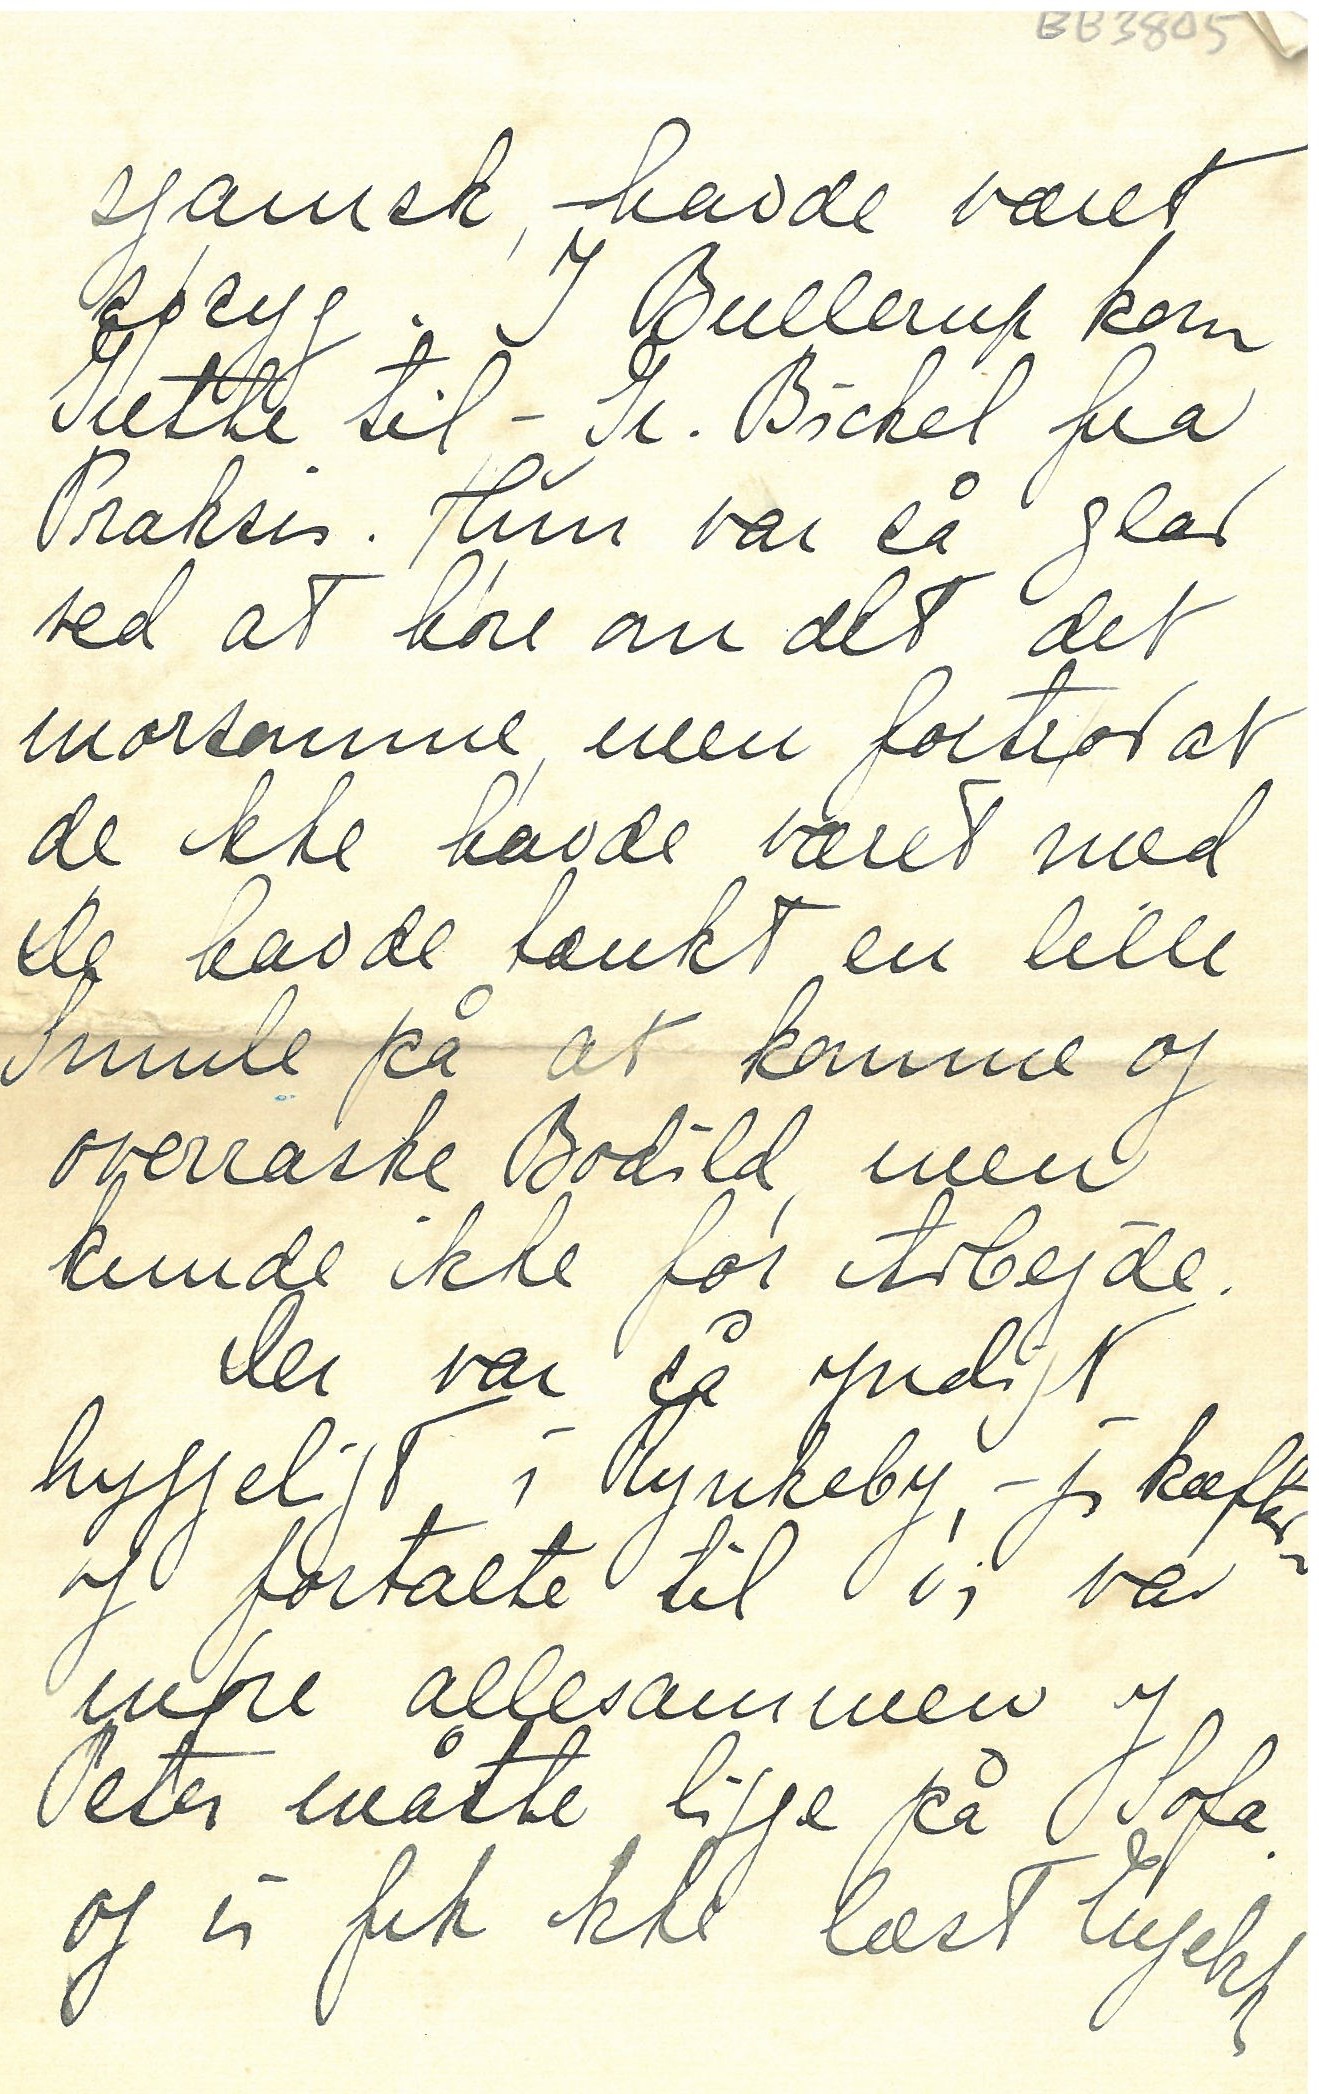 BB3805
sjamsk, - havde været
søsyg. I Bullerup kom
Grethe til - Fr. Bickel fra
Praksis. Hun var så glad
ved at høre om alt det
morsomme, men fortrød at
de ikke havde været med
De havde tænkt en lille
Smule på at komme og
overraske Bodild, men
kunde ikke for Arbejde.
Der var så yndigt
hyggeligt i Rynkeby, - vi kæfted
og fortalte til vi var
møre allesammen og
Peter måtte ligge på Sofa.
og vi fik ikke læst